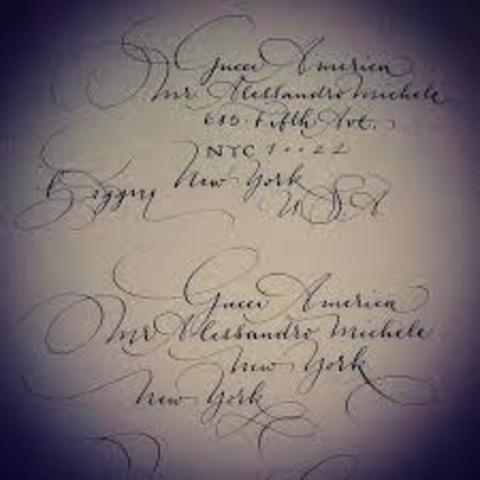 Gucci America
Mr Alessandro Michele
685 Fifth Ave.
NYC 1··22
New York
USA
Gucci America
Mr Alessandro Michele
New York
New York